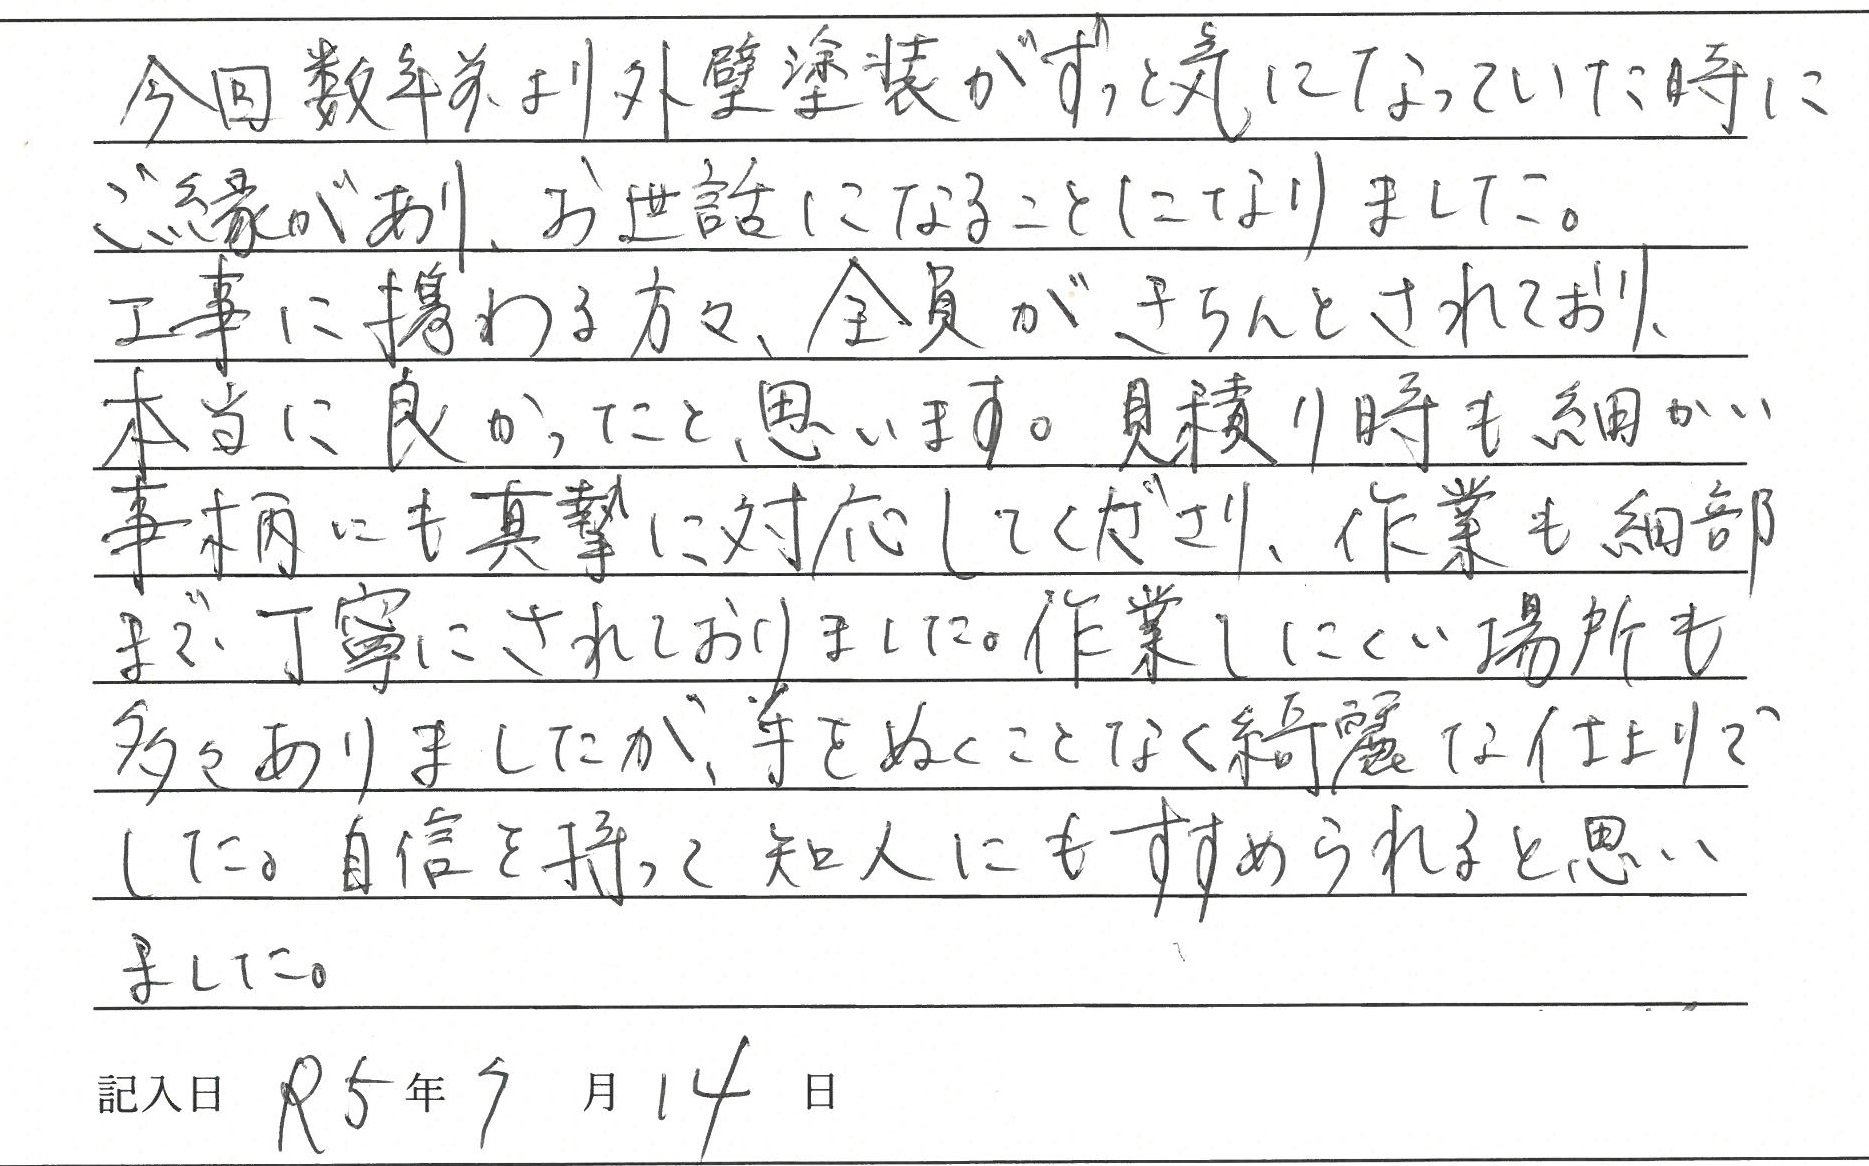 今回数年前より外壁塗装がずっと気になっていた時に
ご縁があり、お世話になることになりました。
工事に携わる方々、全員がきちんとされており、
本当に良かったと思います。見積り時も細かい
事柄にも真摯に対応してくださり、作業も細部
まで丁寧にされておりました。作業しにくい場所も
多々ありましたが、手をぬくことなく綺麗な仕上りで
した。自信を持って知人にもすすめられると思い
ました。
記入日 R5年 月 14 日